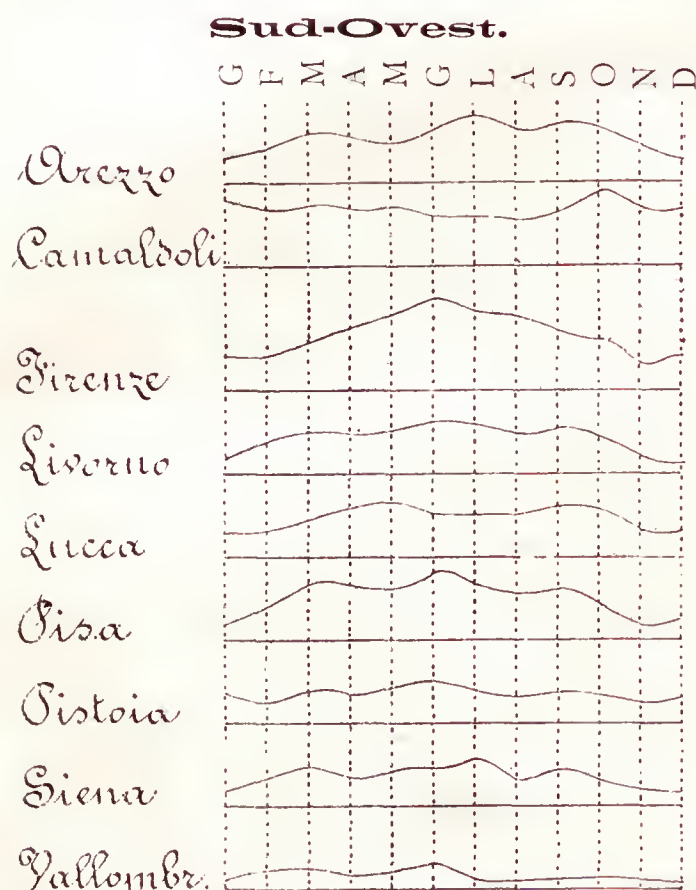 Sud-Ovest.
G F M A M G L A S O N D
Arezzo
Camaldoli
Firenze
Livorno
Lucca
Pisa
Pistoia
Siena
Vallombr.